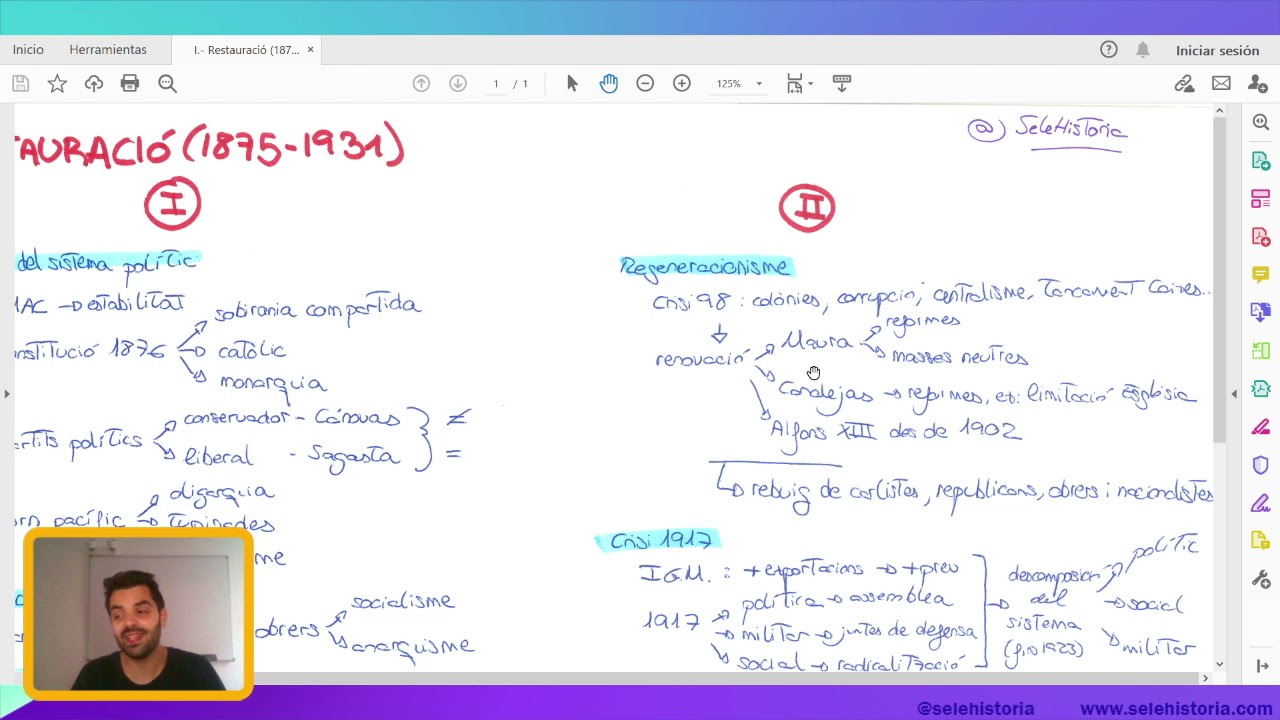 Inicio Herramientas I.- Restauració (187... × Iniciar sesión
1 / 1 125%
@ SeleHistoria
TAURACIÓ (1875-1931)
I
del sistema polític
MAC → estabilitat
nstitució 1876
sobirania compartida
catòlic
monarquia
rtits polítics
conservador - Cánovas ≠
liberal - Sagasta =
orn pacífic
oligarquia
tupinades
me
obrers
socialisme
anarquisme
II
Regeneracionisme
Crisi 98 : colònies, corrupció, centralisme, Tancament Caixes...
renovació
Maura
reformes
masses neutres
Canalejas → reformes, ex: limitació Església
Alfons XIII des de 1902
rebuig de carlistes, republicans, obrers i nacionalistes
Crisi 1917
I G.M. : + exportacions → + preu
1917
política → assemblea
militar → juntes de defensa
social → radicalització
descomposició
del
sistema
(fins 1923)
polític
social
militar
@selehistoria www.selehistoria.com